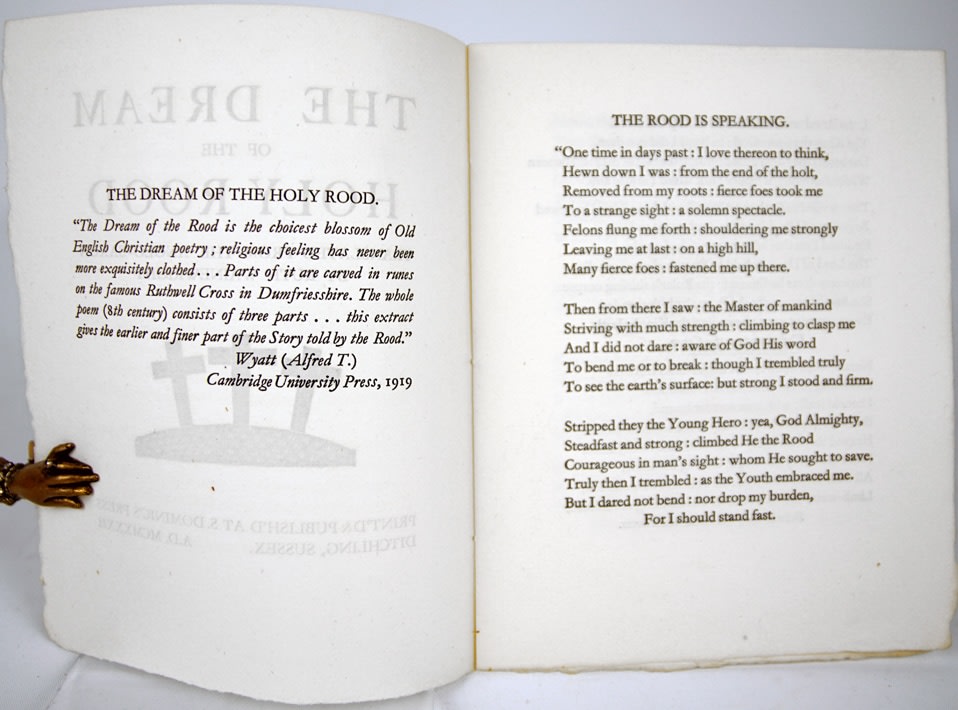 THE DREAM OF THE HOLY ROOD.
“The Dream of the Rood is the choicest blossom of Old
English Christian poetry; religious feeling has never been
more exquisitely clothed... Parts of it are carved in runes
on the famous Ruthwell Cross in Dumfriesshire. The whole
poem (8th century) consists of three parts ... this extract
gives the earlier and finer part of the Story told by the Rood.”
Wyatt (Alfred T.)
Cambridge University Press, 1919
THE DREAM
OF THE
HOLY ROOD
PRINT'D & PUBLISH'D AT S. DOMINIC'S PRESS
DITCHLING, SUSSEX. A.D. MCMXXXII
THE ROOD IS SPEAKING.
“One time in days past : I love thereon to think,
Hewn down I was : from the end of the holt,
Removed from my roots : fierce foes took me
To a strange sight : a solemn spectacle.
Felons flung me forth : shouldering me strongly
Leaving me at last : on a high hill,
Many fierce foes : fastened me up there.
Then from there I saw : the Master of mankind
Striving with much strength : climbing to clasp me
And I did not dare : aware of God His word
To bend me or to break : though I trembled truly
To see the earth's surface: but strong I stood and firm.
Stripped they the Young Hero : yea, God Almighty,
Steadfast and strong : climbed He the Rood
Courageous in man's sight : whom He sought to save.
Truly then I trembled : as the Youth embraced me.
But I dared not bend : nor drop my burden,
For I should stand fast.